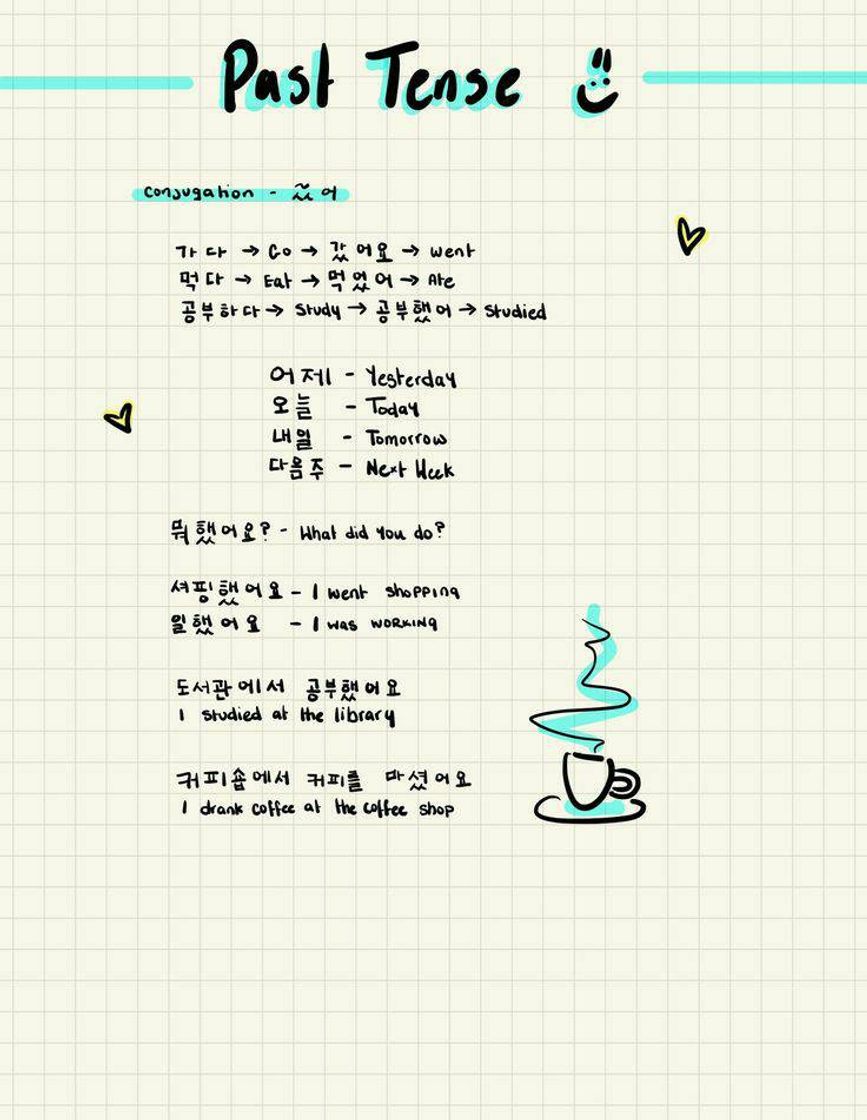 Past Tense
conjugation - ㅆ어
가다 → Go → 갔어요 → went
먹다 → Eat → 먹었어 → Ate
공부하다 → Study → 공부했어 → Studied
어제 - Yesterday
오늘 - Today
내일 - Tomorrow
다음주 - Next Week
뭐했어요? - What did you do?
셔핑했어요 - I went shopping
일했어요 - I was working
도서관에서 공부했어요
I studied at the library
커피숍에서 커피를 마셨어요
I drank coffee at the coffee shop